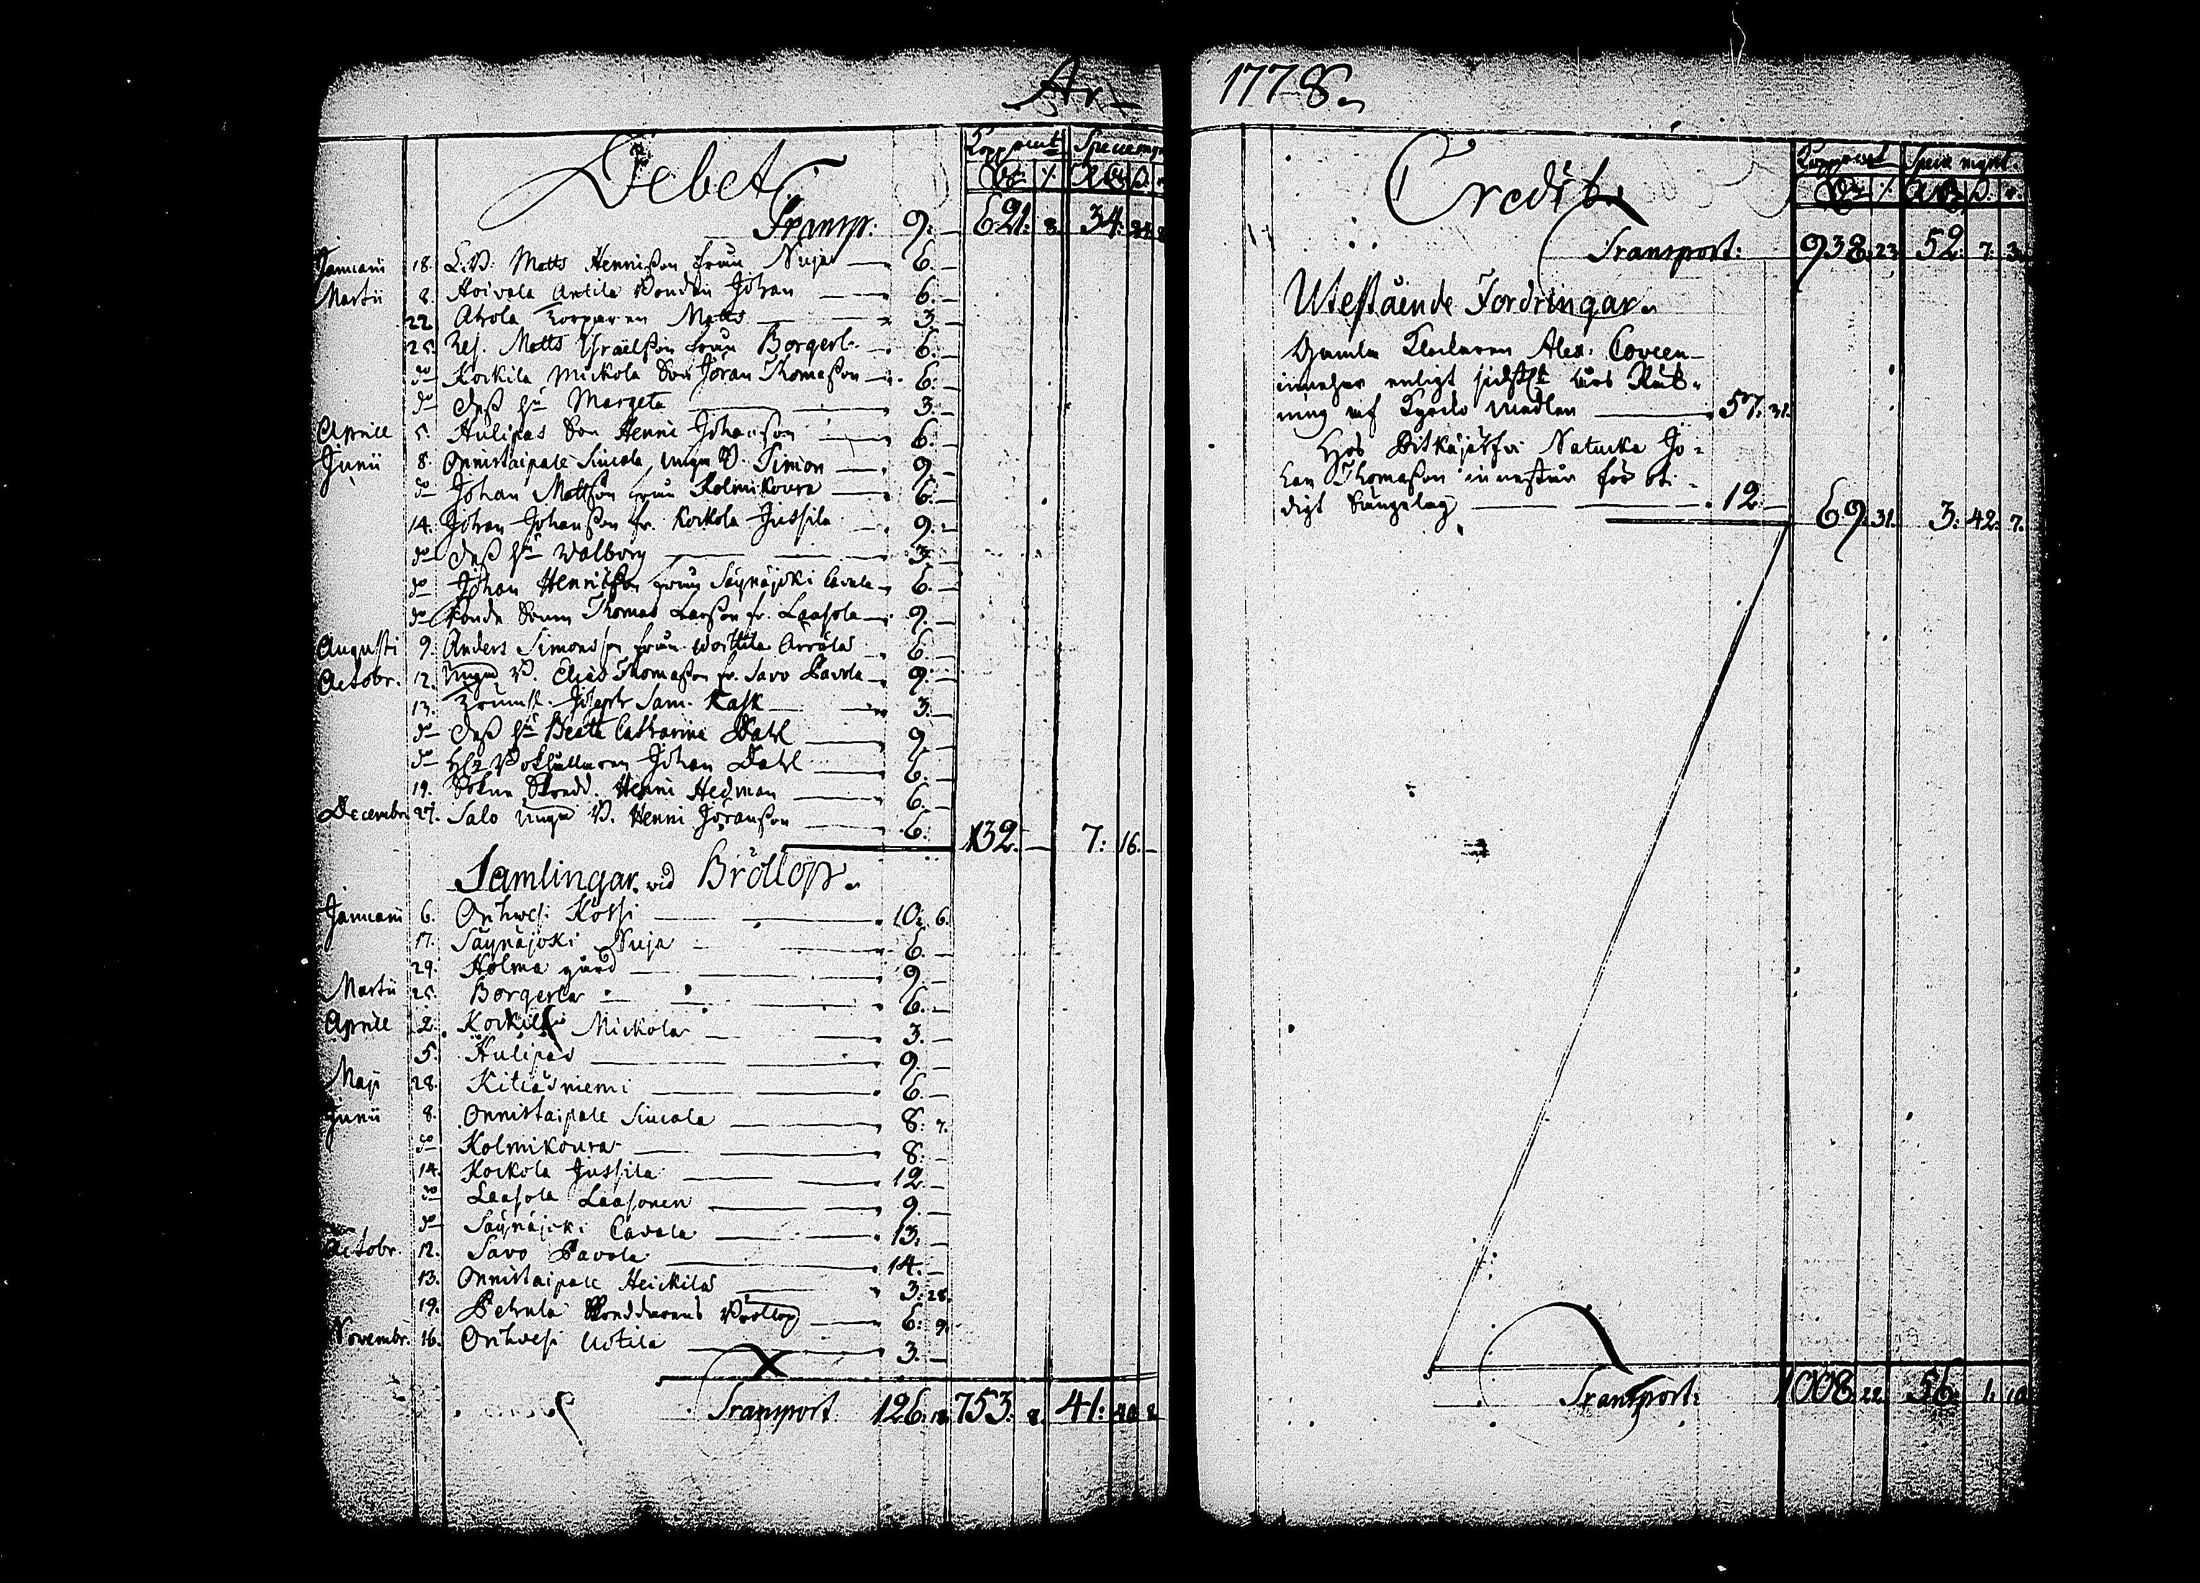 Ar
Debet Koppmt Specie mynt
Transp: 9:— 621: 8. 34: 24. 8
Januarii 18. L. B: Matts Hennisson från Nuja — 6. —
Martii 8. Hoivala Antila Bonden Johan — 6. —
22. Ahola Torparen Matts — 3. —
25. Res. Matts Israelsson från Borgerl. — 6. —
do Kockila Mickola Son Jöran Thomasson — 6. —
do Dess Hu Margeta — 3. —
Aprill 5. Hulipas Son Henric Johansson — 6. —
Junii 8. Onnistaipale Siucola, unge B. Simon — 9. —
do Johan Mattsson från Kolmikoura — 6. —
14. Johan Johansson fr. Kockola Jussila — 9. —
do Dess Hu Walborg — 3. —
do Johan Henricsson från Säynäjoki Cavala — 6. —
do Bonde Sonen Thomas Larsson fr. Laasola — 9. —
Augusti 9. Anders Simonsson från Woittila Arrölas — 6. —
Octobr. 12. Unge B. Elias Thomasson fr. Savo Pavola — 9. —
13. Trumsl. Joseph Sam. Kask — 3. —
do Dess Hu Beata Catharina Dahl — 9. —
do Bokhållaren Johan Dahl — 6. —
19. Sokne Skredd. Henric Hedman — 6. —
Decembr. 27. Salo unge B. Henric Jöransson — 6. 132. — 7: 16. —
Samlingar vid Bröllop.
Januarii 6. Orihvesi Kossi — 10. 6.
17. Säynäjoki Nuja — 6. —
29. Holma gård — 9. —
Martii 25. Borgerla — 6. —
Aprill 2. Kockila Mickola — 3. —
5. Hulipas — 9. —
Maji 28. Kitiäsniemi — 6. —
Junii 8. Onnistaipale Siucola — 8. 7.
do Kolmikoura — 8. —
14. Kockola Jussila — 12. —
do Laasola Laasonen — 9. —
do Säynäjoki Cavala — 13. —
Octobr. 12. Savo Pavola — 14. —
13. Onnistaipale Heickilas — 3: 28.
19. Pehula Skreddarens Bröllop — 6: 9.
Novembr. 16. Orihvesi Uotila — 3. —
Transport 126. 18. 753. 8. 41: 40. 8
1778.
Credit Koppmt Specie mynt.
Transport: 938. 23. 52. 7. 3.
Utestående Fordringar.
Gamla Klockaren Alex. Coveen
innehar enligt sidsta års Räk-
ning af Kyrcko medlen — 57. 31.
Hos Pitkäjärfvi Natucka Jo-
han Thomasson innestår för
digt — 12. — 69. 31. 3: 42. 7.
Transport: 1008. 22. 56. 1. 10